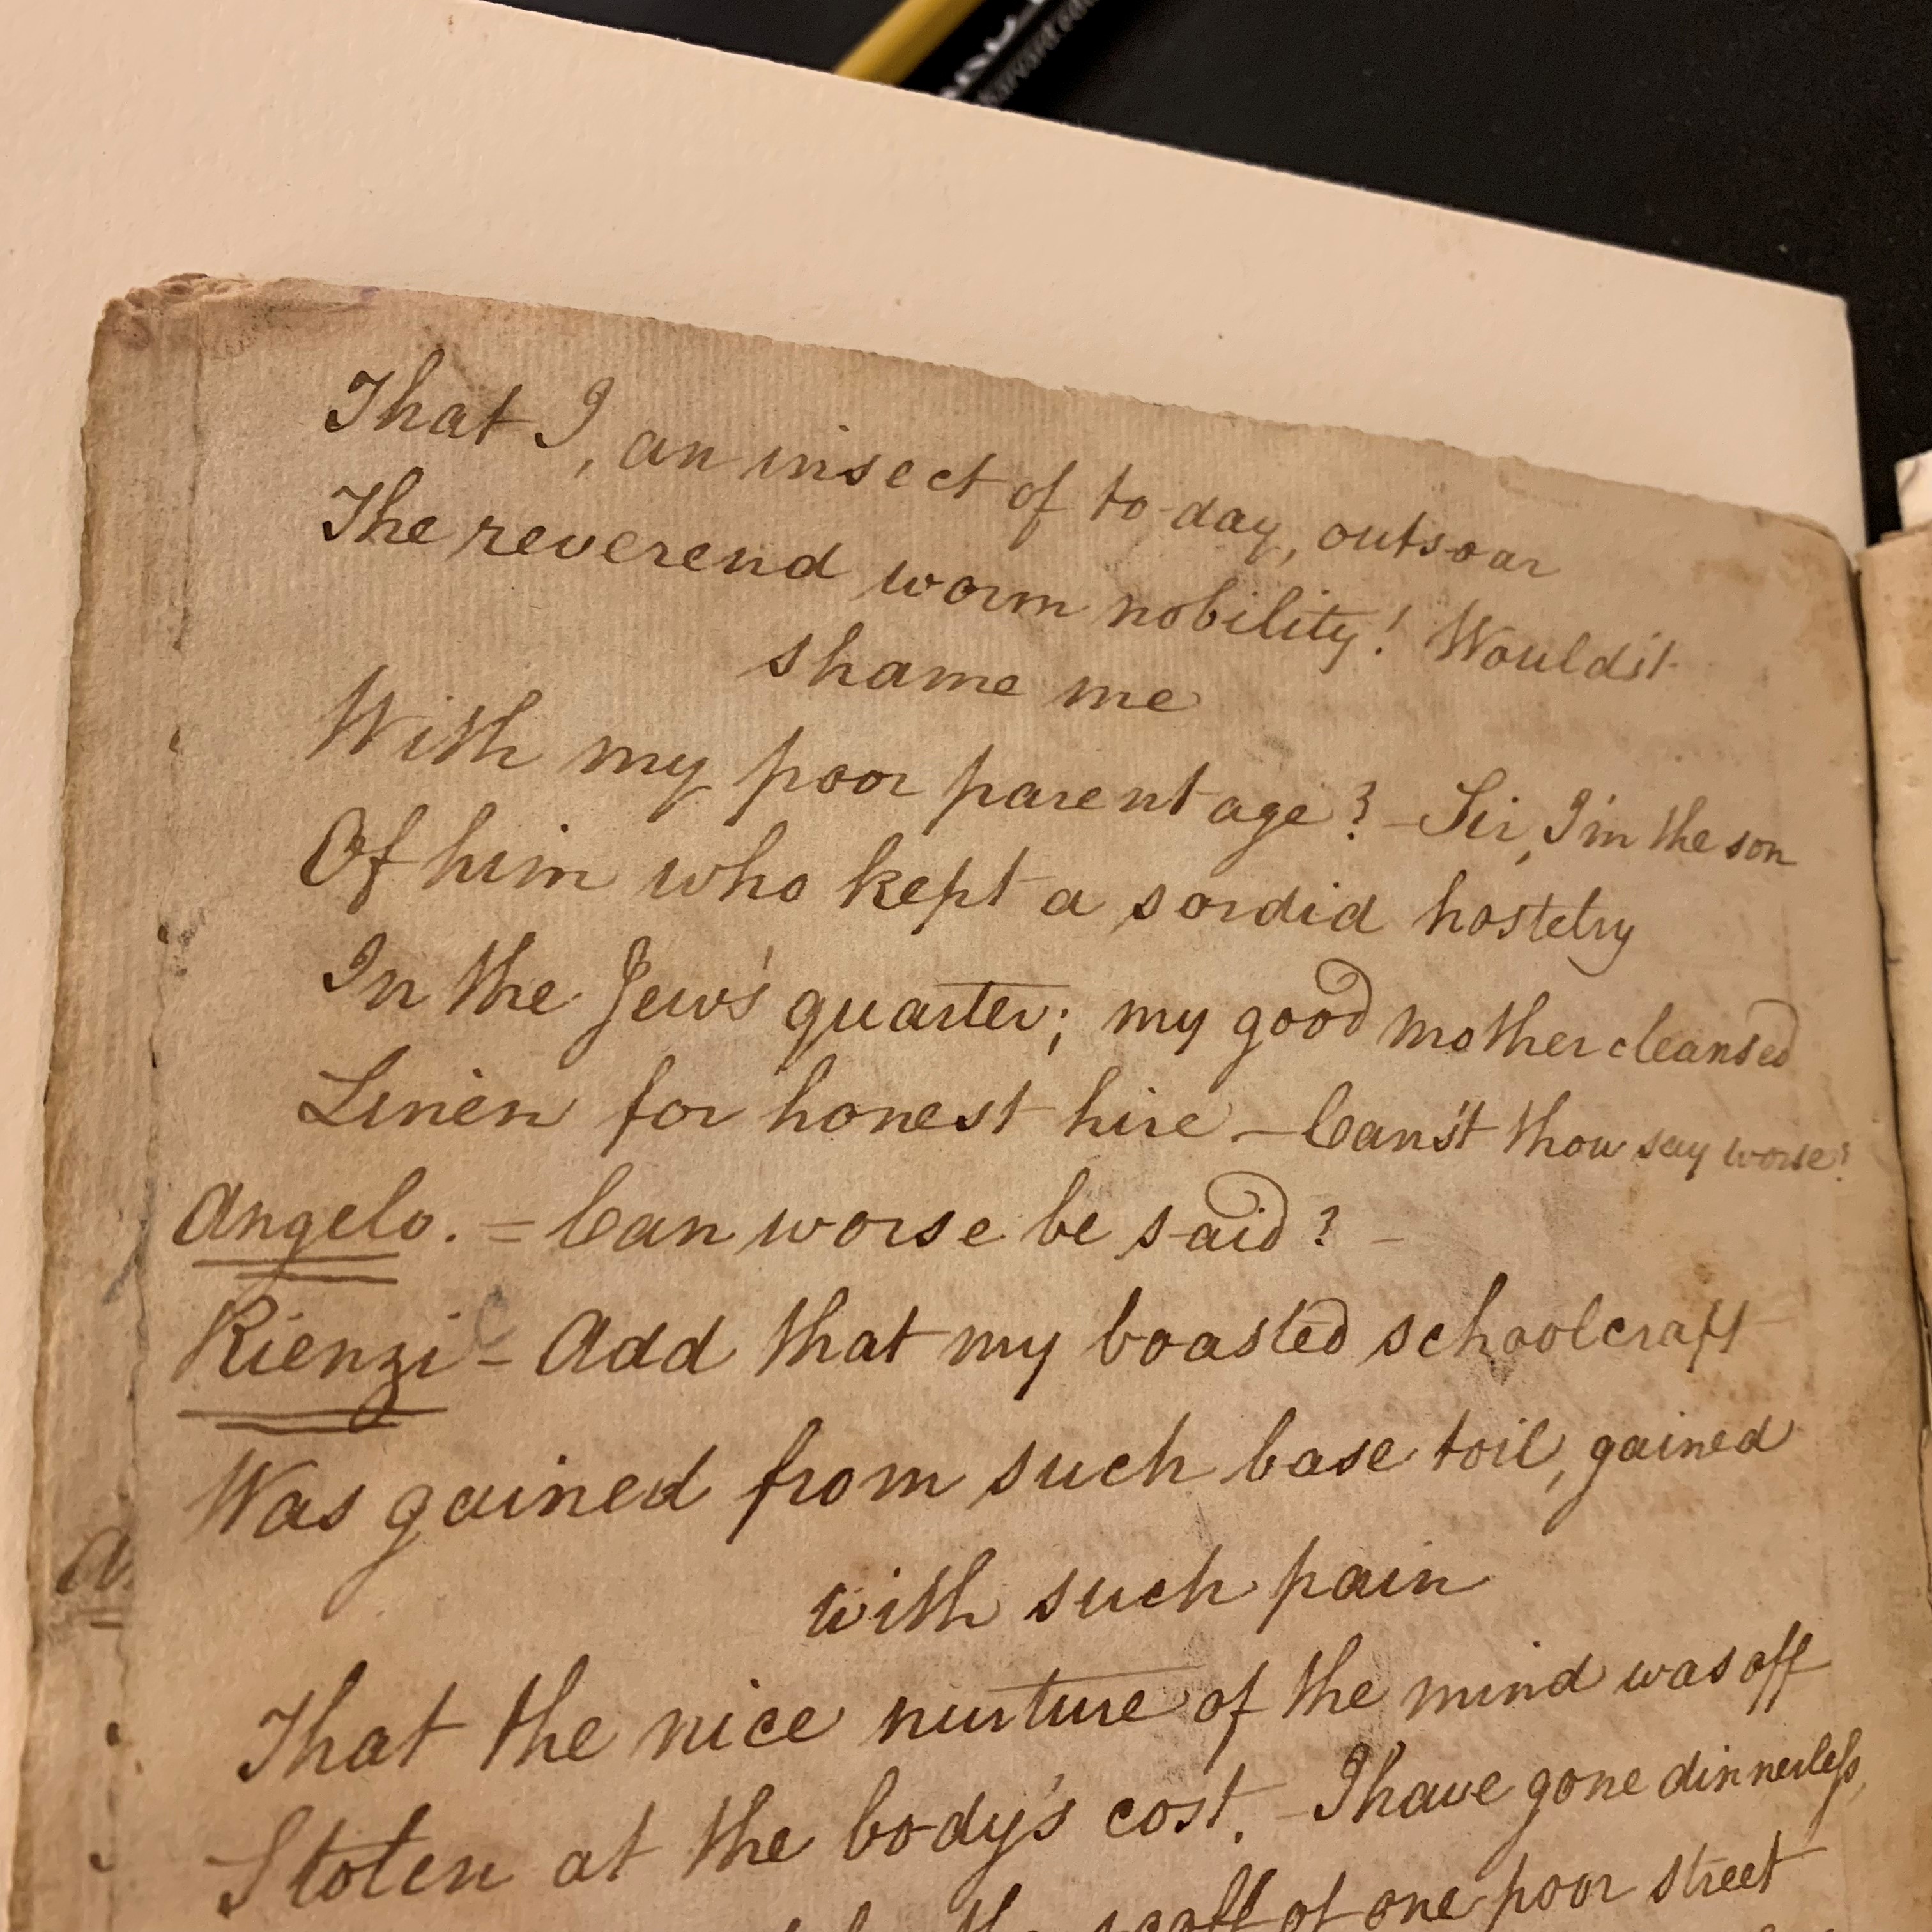 That I, an insect of to-day, outsoar
The reverend worm nobility! Would'st
shame me
With my poor parentage? – Sir, I'm the son
Of him who kept a sordid hostelry
In the Jew's quarter; my good mother cleansed
Linen for honest hire – Can'st thou say worse?
Angelo. = Can worse be said? –
Rienzi – Add that my boasted schoolcraft
Was gained from such base toil, gained
with such pain
That the nice nurture of the mind was off
Stolen at the body's cost. – I have gone dinnerless,
scoff of one poor street